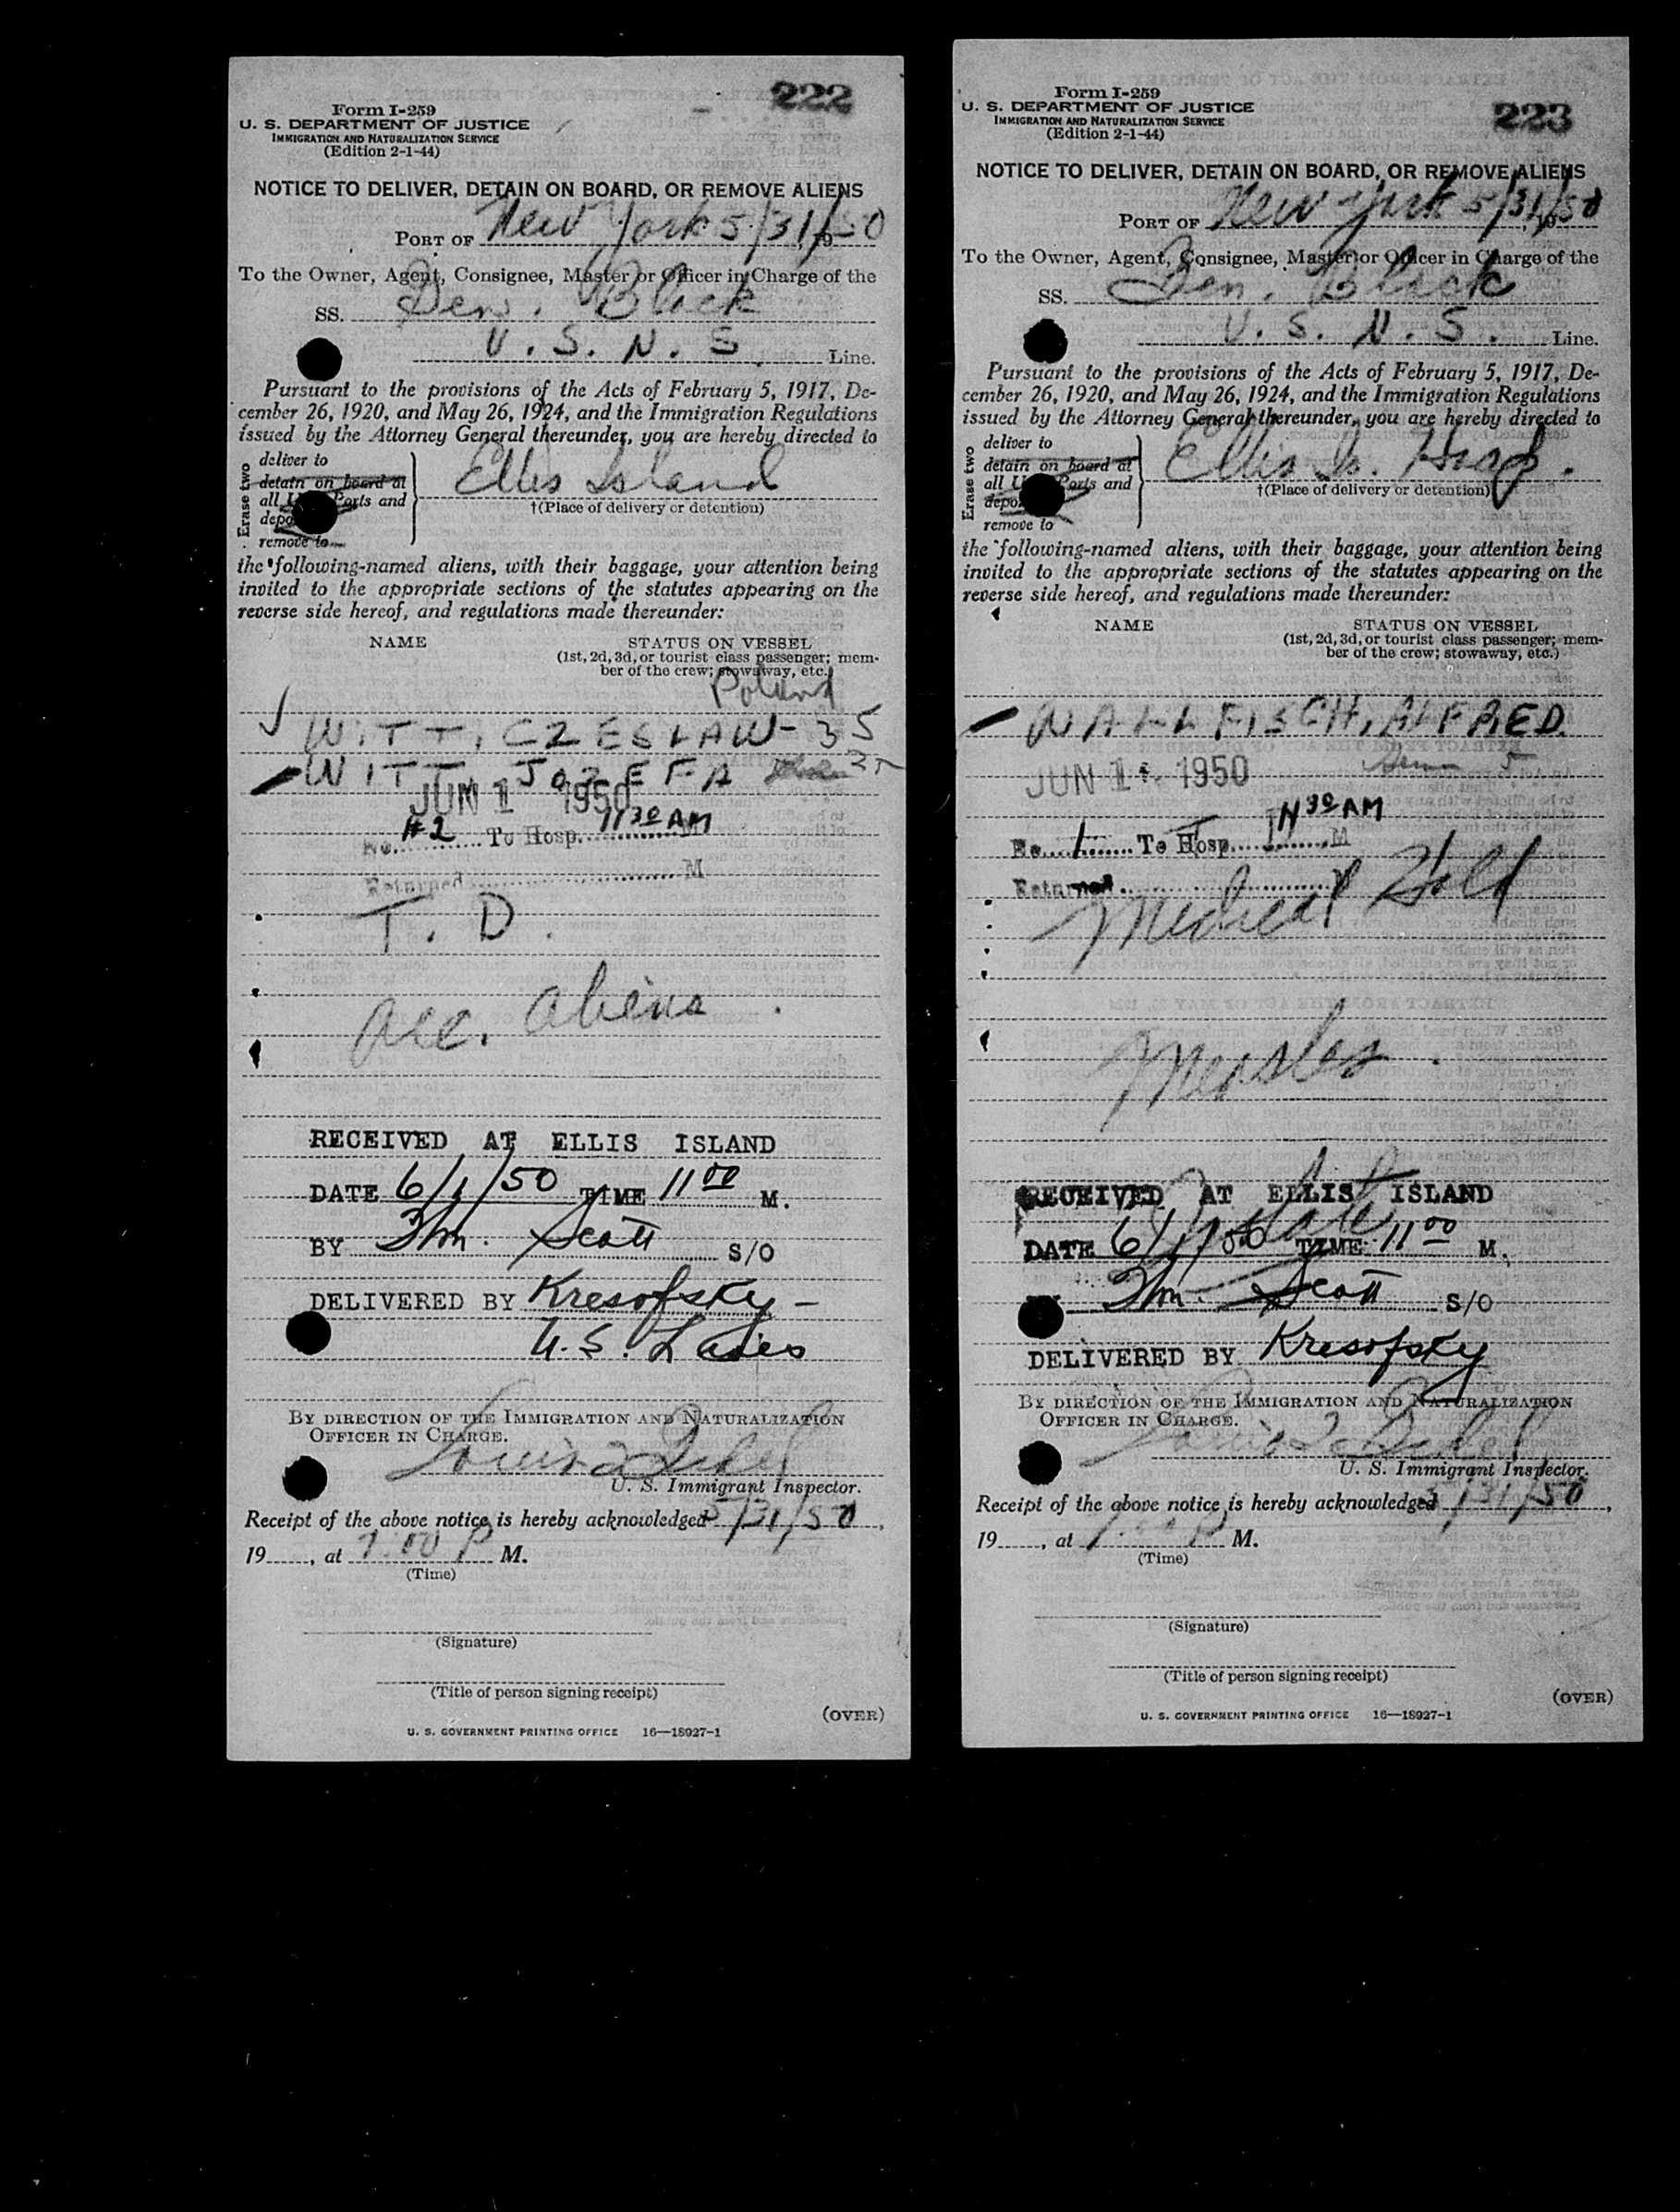 222
Form I-259
U. S. DEPARTMENT OF JUSTICE
IMMIGRATION AND NATURALIZATION SERVICE
(Edition 2-1-44)
NOTICE TO DELIVER, DETAIN ON BOARD, OR REMOVE ALIENS
PORT OF New York 5/31/50
To the Owner, Agent, Consignee, Master or Officer in Charge of the
SS. Gen. Black
U. S. N. S. Line.
Pursuant to the provisions of the Acts of February 5, 1917, De-
cember 26, 1920, and May 26, 1924, and the Immigration Regulations
issued by the Attorney General thereunder, you are hereby directed to
Erase two
deliver to
detain on board at
all Ports and
remove to
Ellis Island
†(Place of delivery or detention)
the following-named aliens, with their baggage, your attention being
invited to the appropriate sections of the statutes appearing on the
reverse side hereof, and regulations made thereunder:
NAME STATUS ON VESSEL
(1st, 2d, 3d, or tourist class passenger; mem-
ber of the crew; stowaway, etc.)
Poland
WITT, CZESLAW - 35
WITT JOZEFA
JUN 1 1950
No. #2 To Hosp. 11 30 AM
Returned M
T. D.
acc. aliens
RECEIVED AT ELLIS ISLAND
DATE 6/1/50 TIME 11 00 M.
BY Wm. Scott S/O
DELIVERED BY Kresofsky -
U.S. Lines
BY DIRECTION OF THE IMMIGRATION AND NATURALIZATION
OFFICER IN CHARGE.
U. S. Immigrant Inspector.
Receipt of the above notice is hereby acknowledged 5/31/50,
19, at 7:00 P M.
(Time)
(Signature)
(Title of person signing receipt)
(OVER)
U. S. GOVERNMENT PRINTING OFFICE 16—18927-1
223
Form I-259
U. S. DEPARTMENT OF JUSTICE
IMMIGRATION AND NATURALIZATION SERVICE
(Edition 2-1-44)
NOTICE TO DELIVER, DETAIN ON BOARD, OR REMOVE ALIENS
PORT OF New York 5/31/50
To the Owner, Agent, Consignee, Master or Officer in Charge of the
SS. Gen. Black
U. S. N. S. Line.
Pursuant to the provisions of the Acts of February 5, 1917, De-
cember 26, 1920, and May 26, 1924, and the Immigration Regulations
issued by the Attorney General thereunder, you are hereby directed to
Erase two
deliver to
detain on board at
all Ports and
remove to
Ellis Is. Hosp.
†(Place of delivery or detention)
the following-named aliens, with their baggage, your attention being
invited to the appropriate sections of the statutes appearing on the
reverse side hereof, and regulations made thereunder:
NAME STATUS ON VESSEL
(1st, 2d, 3d, or tourist class passenger; mem-
ber of the crew; stowaway, etc.)
WALLFISCH, ALFRED.
JUN 1 1950
No. 1 To Hosp. 11 30 AM
Returned M
Medical Hold
Measles.
RECEIVED AT ELLIS ISLAND
DATE 6/1/50 TIME 11 00 M.
Wm. Scott S/O
DELIVERED BY Kresofsky
BY DIRECTION OF THE IMMIGRATION AND NATURALIZATION
OFFICER IN CHARGE.
U. S. Immigrant Inspector.
Receipt of the above notice is hereby acknowledged 5/31/50,
19, at P M.
(Time)
(Signature)
(Title of person signing receipt)
(OVER)
U. S. GOVERNMENT PRINTING OFFICE 16—18927-1